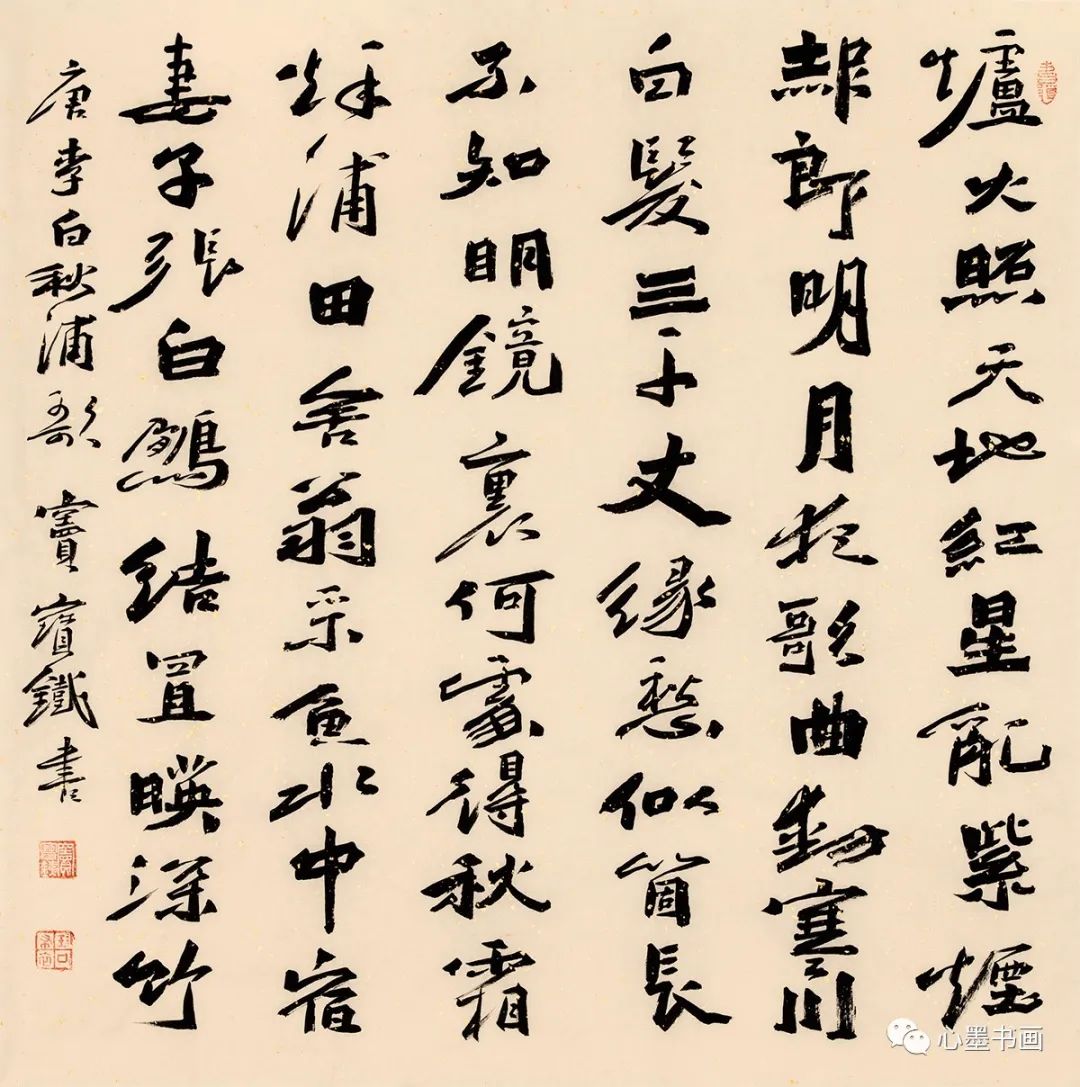 爐火照天地紅星亂紫煙
赧郎明月夜歌曲動寒川
白髮三千丈緣愁似箇長
不知明鏡裏何處得秋霜
秌浦田舍翁采魚水中宿
妻子張白鷴結罝暎深竹
唐李白秋浦歌 竇寶鐵書
心墨书画